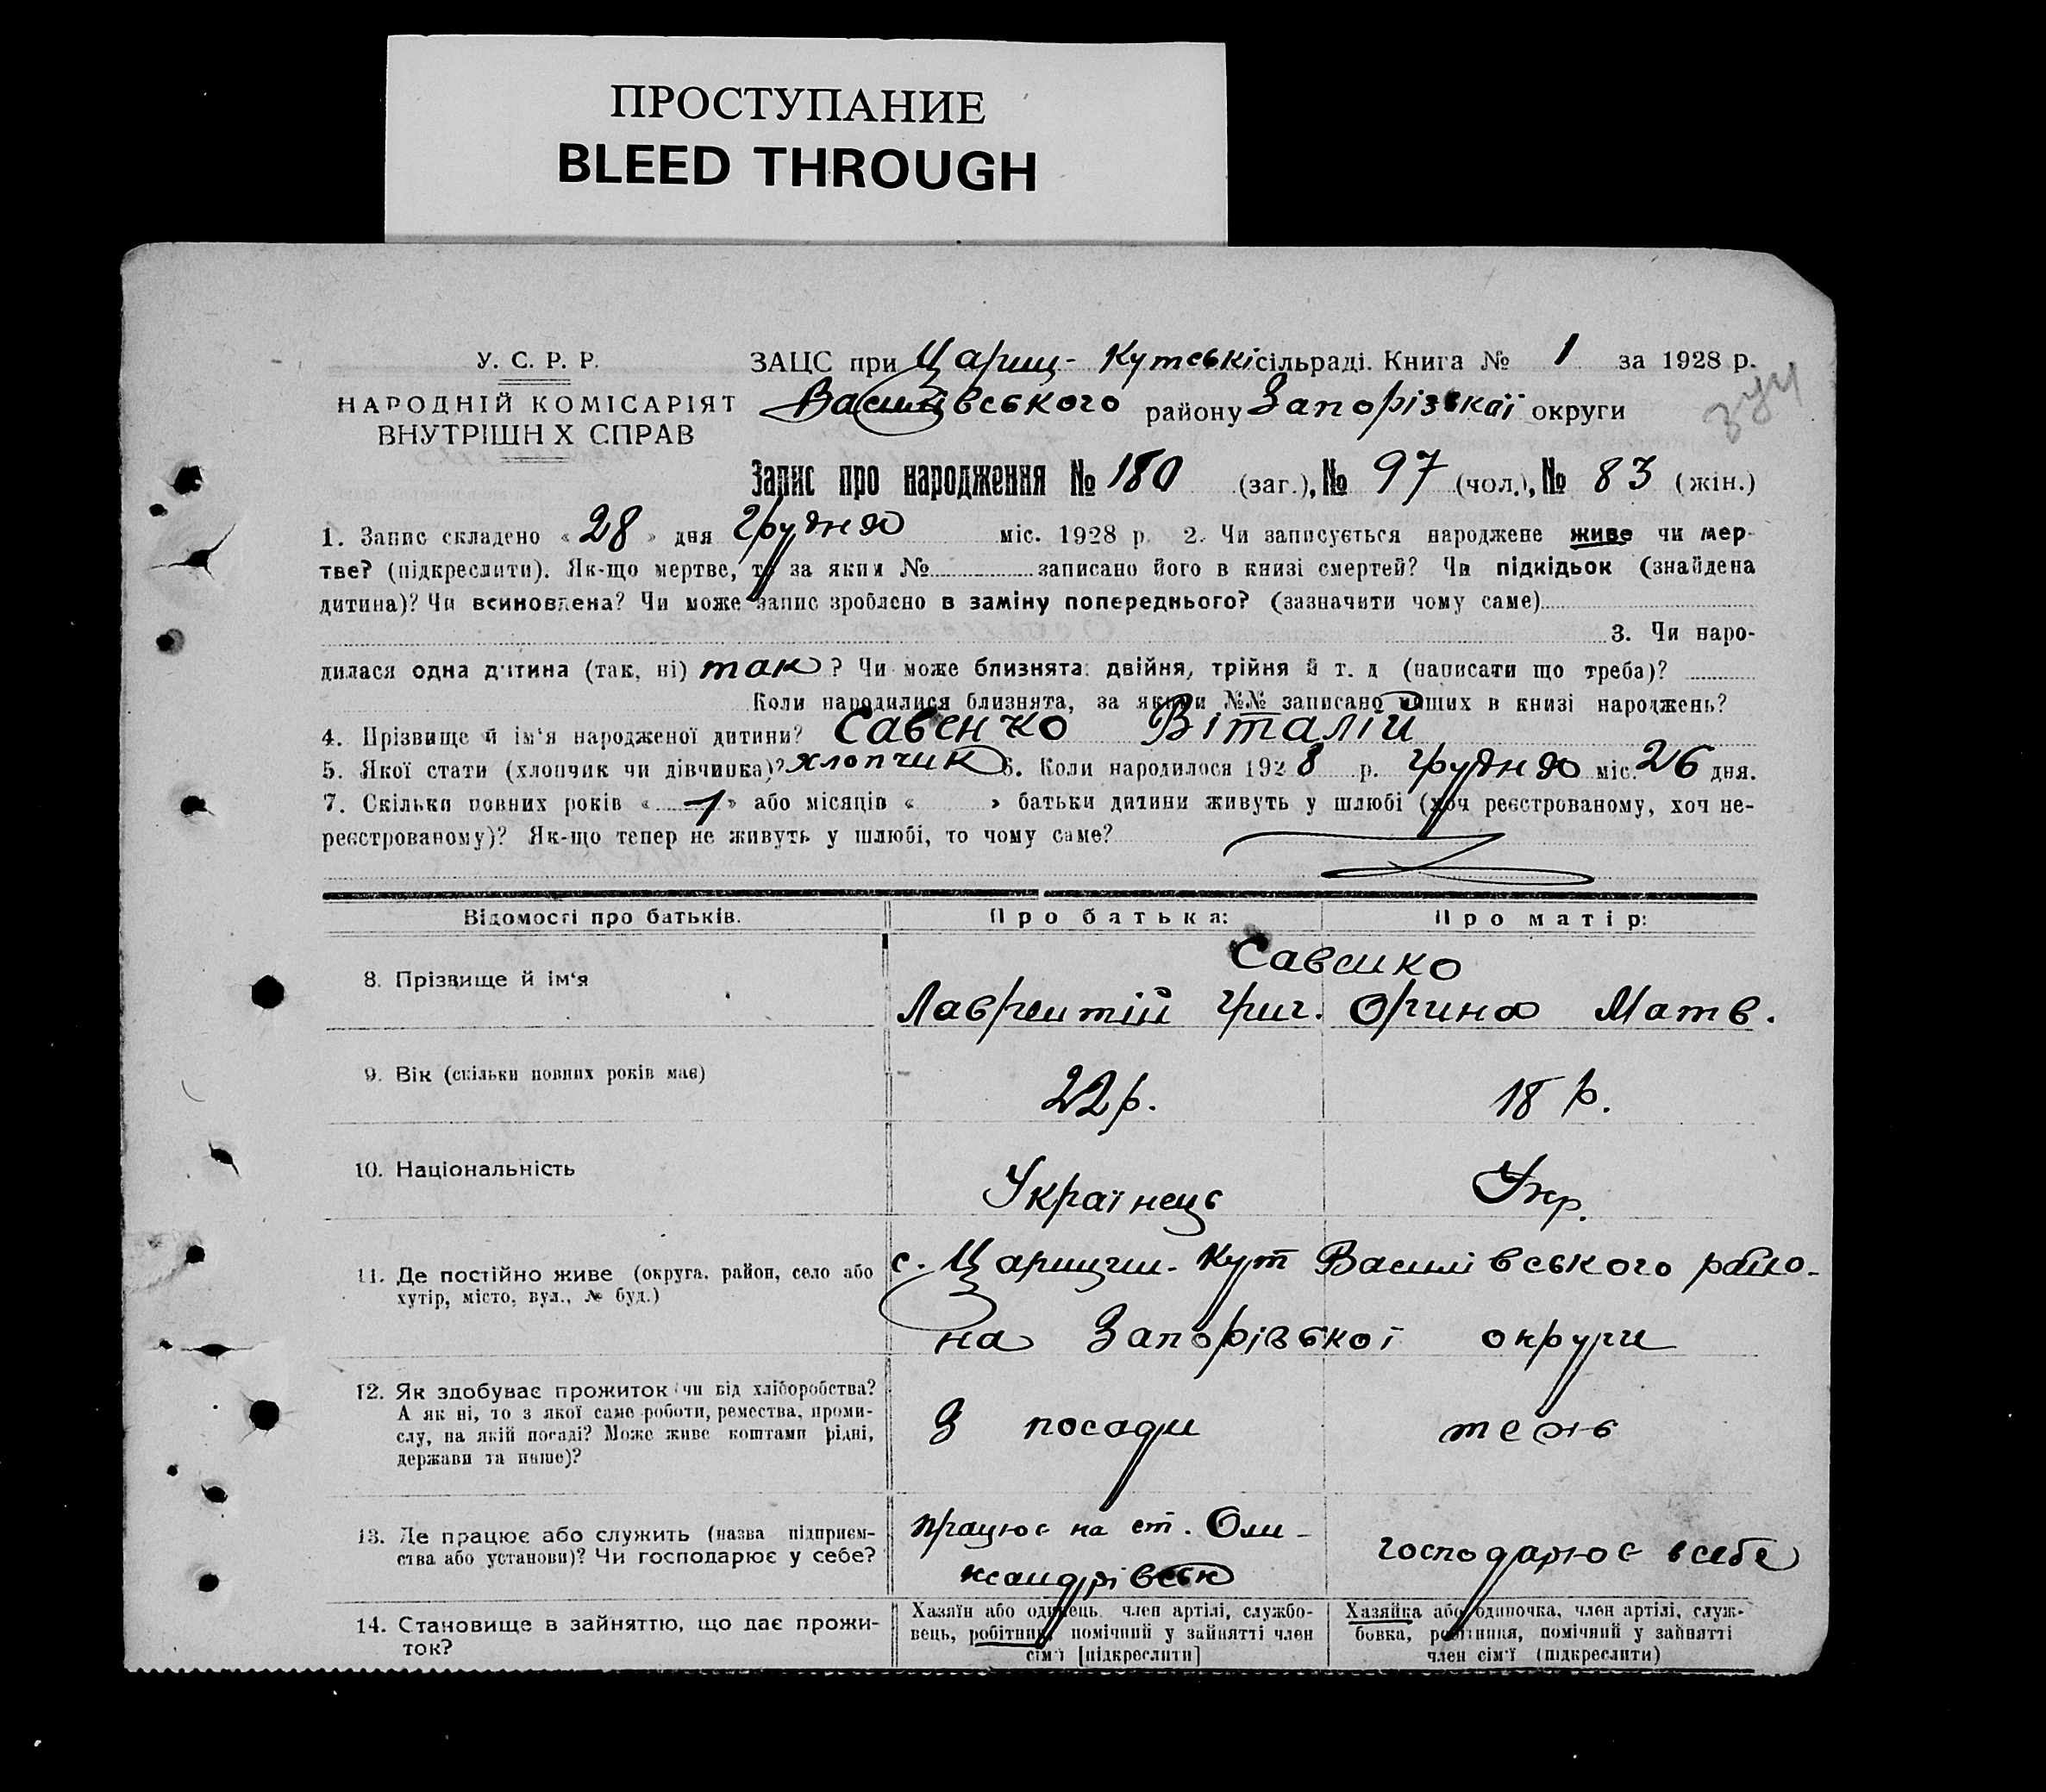 ПРОСТУПАНИЕ
BLEED THROUGH
У. С. Р. Р.
НАРОДНІЙ КОМІСАРІЯТ
ВНУТРІШН Х СПРАВ
ЗАЦС при Цариц-Кутській сільраді. Книга № 1 за 1928 р.
Василівського району Запорізької округи
Запис про народження № 180 (заг.), № 97 (чол.), № 83 (жін.)
1. Запис складено « 28 » дня грудня міс. 1928 р. 2. Чи записується народжене живе чи мер-
тве? (підкреслити). Як-що мертве, то за яким № записано його в книзі смертей? Чи підкідьок (знайдена
дитина)? Чи всиновлена? Чи може запис зроблено в заміну попереднього? (зазначити чому саме)
3. Чи наро-
дилася одна дитина (так, ні) так ? Чи може близнята: двійня, трійня й т. д (написати що треба)?
Коли народилися близнята, за якими №№ записано інших в книзі народжень?
4. Прізвище й ім'я народженої дитини? Савенко Віталій
5. Якої стати (хлопчик чи дівчинка)? хлопчик 6. Коли народилося 1928 р. грудня міс. 26 дня.
7. Скільки повних років « 1 » або місяців « » батьки дитини живуть у шлюбі (хоч реєстрованому, хоч не-
реєстрованому)? Як-що тепер не живуть у шлюбі, то чому саме?
Відомості про батьків. Про батька: Про матір:
Савенко
8. Прізвище й ім'я Лаврентій Григ. Орина Матв.
9. Вік (скільки повних років має) 22 р. 18 р.
10. Національність Українець Укр.
11. Де постійно живе (округа, район, село або
хутір, місто, вул., № буд.)
с. Царицин-Кут Василівського райо-
на Запорізької округи
12. Як здобуває прожиток (чи від хліборобства?
А як ні, то з якої саме роботи, ремества, проми-
слу, на якій посаді? Може живе коштами рідні,
держави та инше)?
З посади теж
13. Де працює або служить (назва підприєм-
ства або установи)? Чи господарює у себе?
працює на ст. Оли-
ксандрівськ
господарює в себе
14. Становище в зайняттю, що дає прожи-
ток?
Хазяїн або одинець, член артілі, службо-
вець, робітник, помічний у зайнятті член
сім'ї [підкреслити]
Хазяйка або одиночка, член артілі, служ-
бовка, робітниця, помічний у зайнятті
член сім'ї (підкреслити)